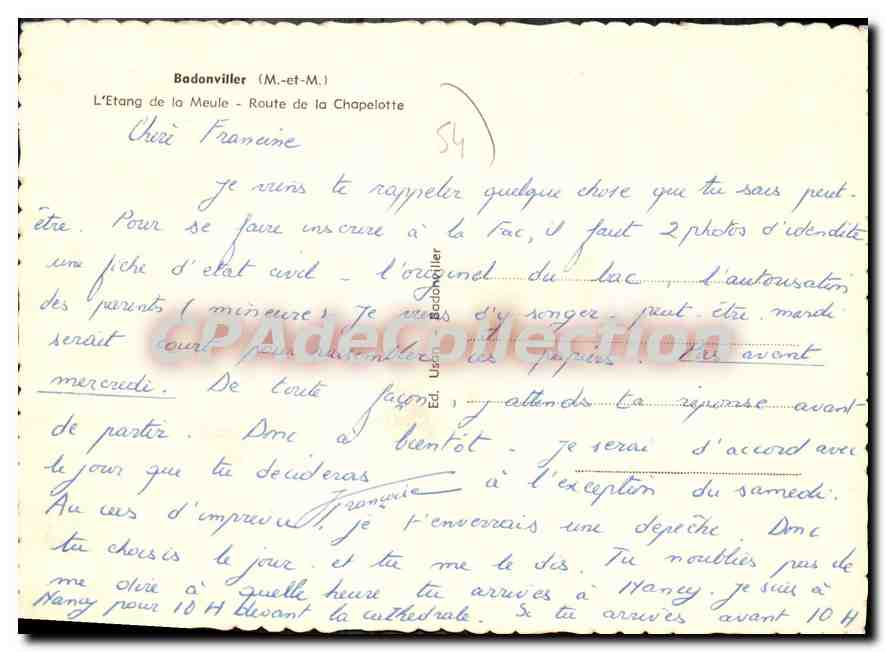 Badonviller (M.-et-M.)
L'Etang de la Meule - Route de la Chapelotte
Chère Francine
54
Je viens te rappeler quelque chose que tu sais peut-
être. Pour se faire inscrire à la Fac, il faut 2 photos d'idendité
une fiche d'état civil - l'originel du bac, l'autorisation
des parents (mineure) Je viens d'y songer - peut-être mardi
serait court pour rassembler ces papiers. Pas avant
mercredi. De toute façon, j'attends ta réponse avant
de partir. Donc à bientôt - Je serai d'accord avec
le jour que tu décideras à l'exception du samedi.
Françoise
Au cas d'imprévu, je t'enverrais une depêche. Donc
tu choisis le jour et tu me le dis. Tu n'oublies pas de
me dire à quelle heure tu arrives à Nancy. Je suis à
Nancy pour 10 H devant la cathédrale. Si tu arrives avant 10 H
Ed. Usson - Badonviller
CPAdeCollection